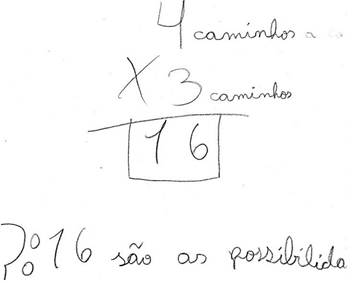 4 caminhos a
X 3 caminhos
16
R: 16 são as possibilida